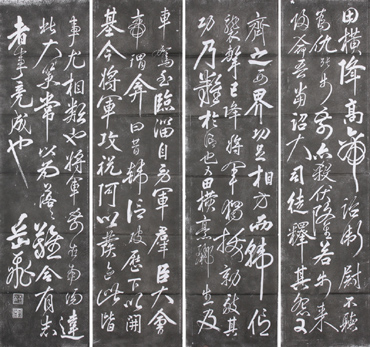 田橫降高帝詔衛尉不聽
為仇張步前亦殺伏隆若步來
歸命吾當詔大司徒釋其怨又
齊之西界功足相方而韓信
襲擊已降將軍獨拔勍敵其
功乃難於信也又田橫烹酈生及
車駕至臨淄自勞軍群臣大會
帝謂弇曰昔韓信破歷下以開
基今將軍攻祝阿以發跡此皆
事尤相類也將軍前在南陽建
此大策常以為落落難合有志
者事竟成也
岳飛